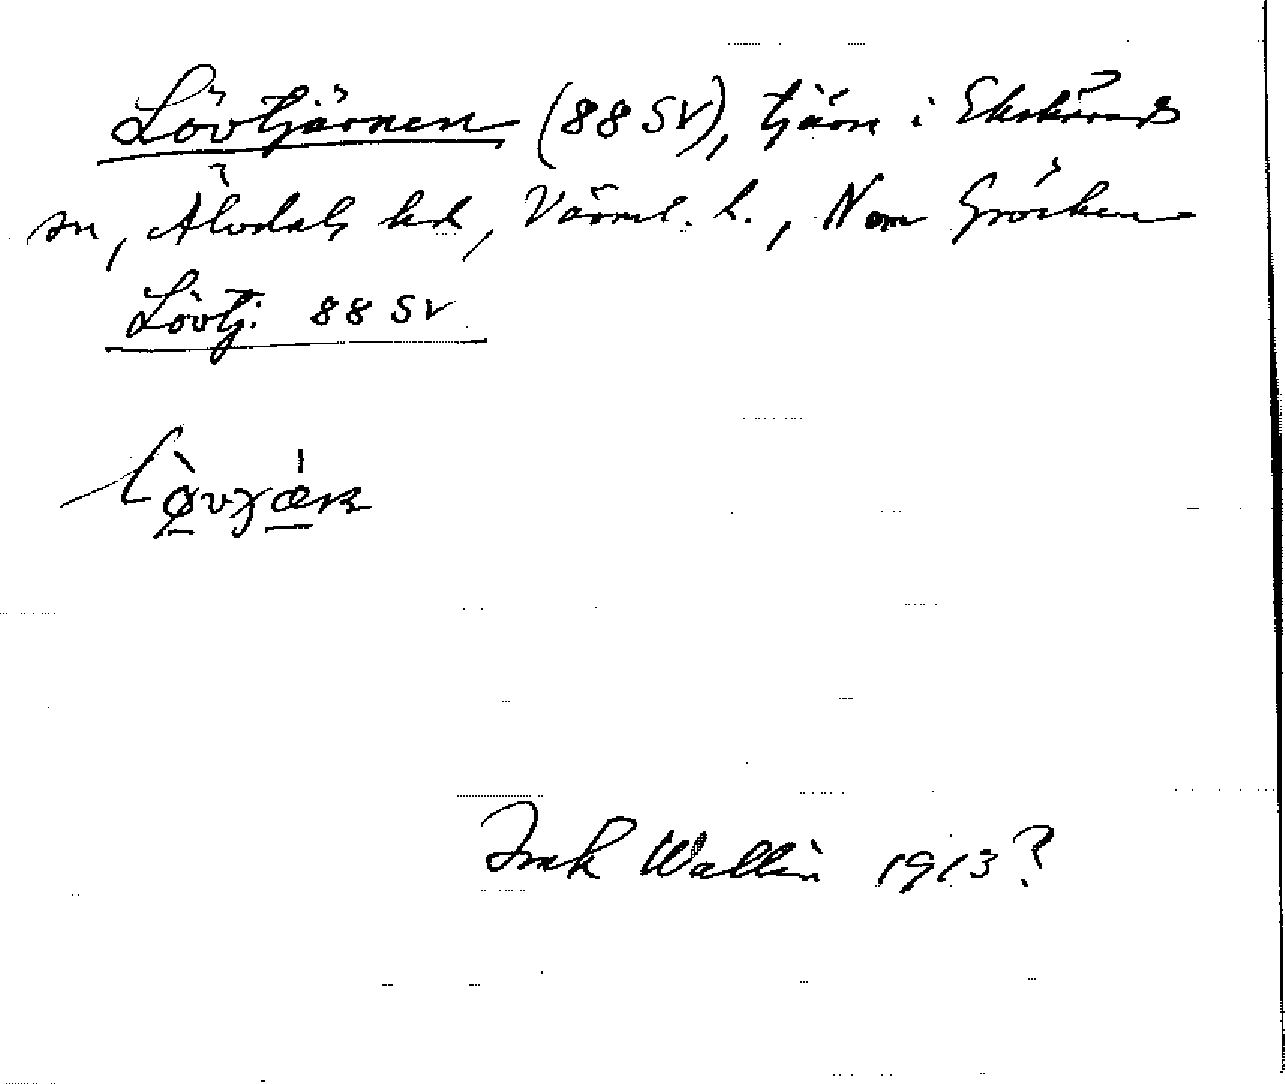 Lövtjärnen (88 SV), tjärn i Ekshärads
sn, Älvdals hd, Värml. l., N om Gröcken
Lövtj. 88 SV
Wallin 1913?